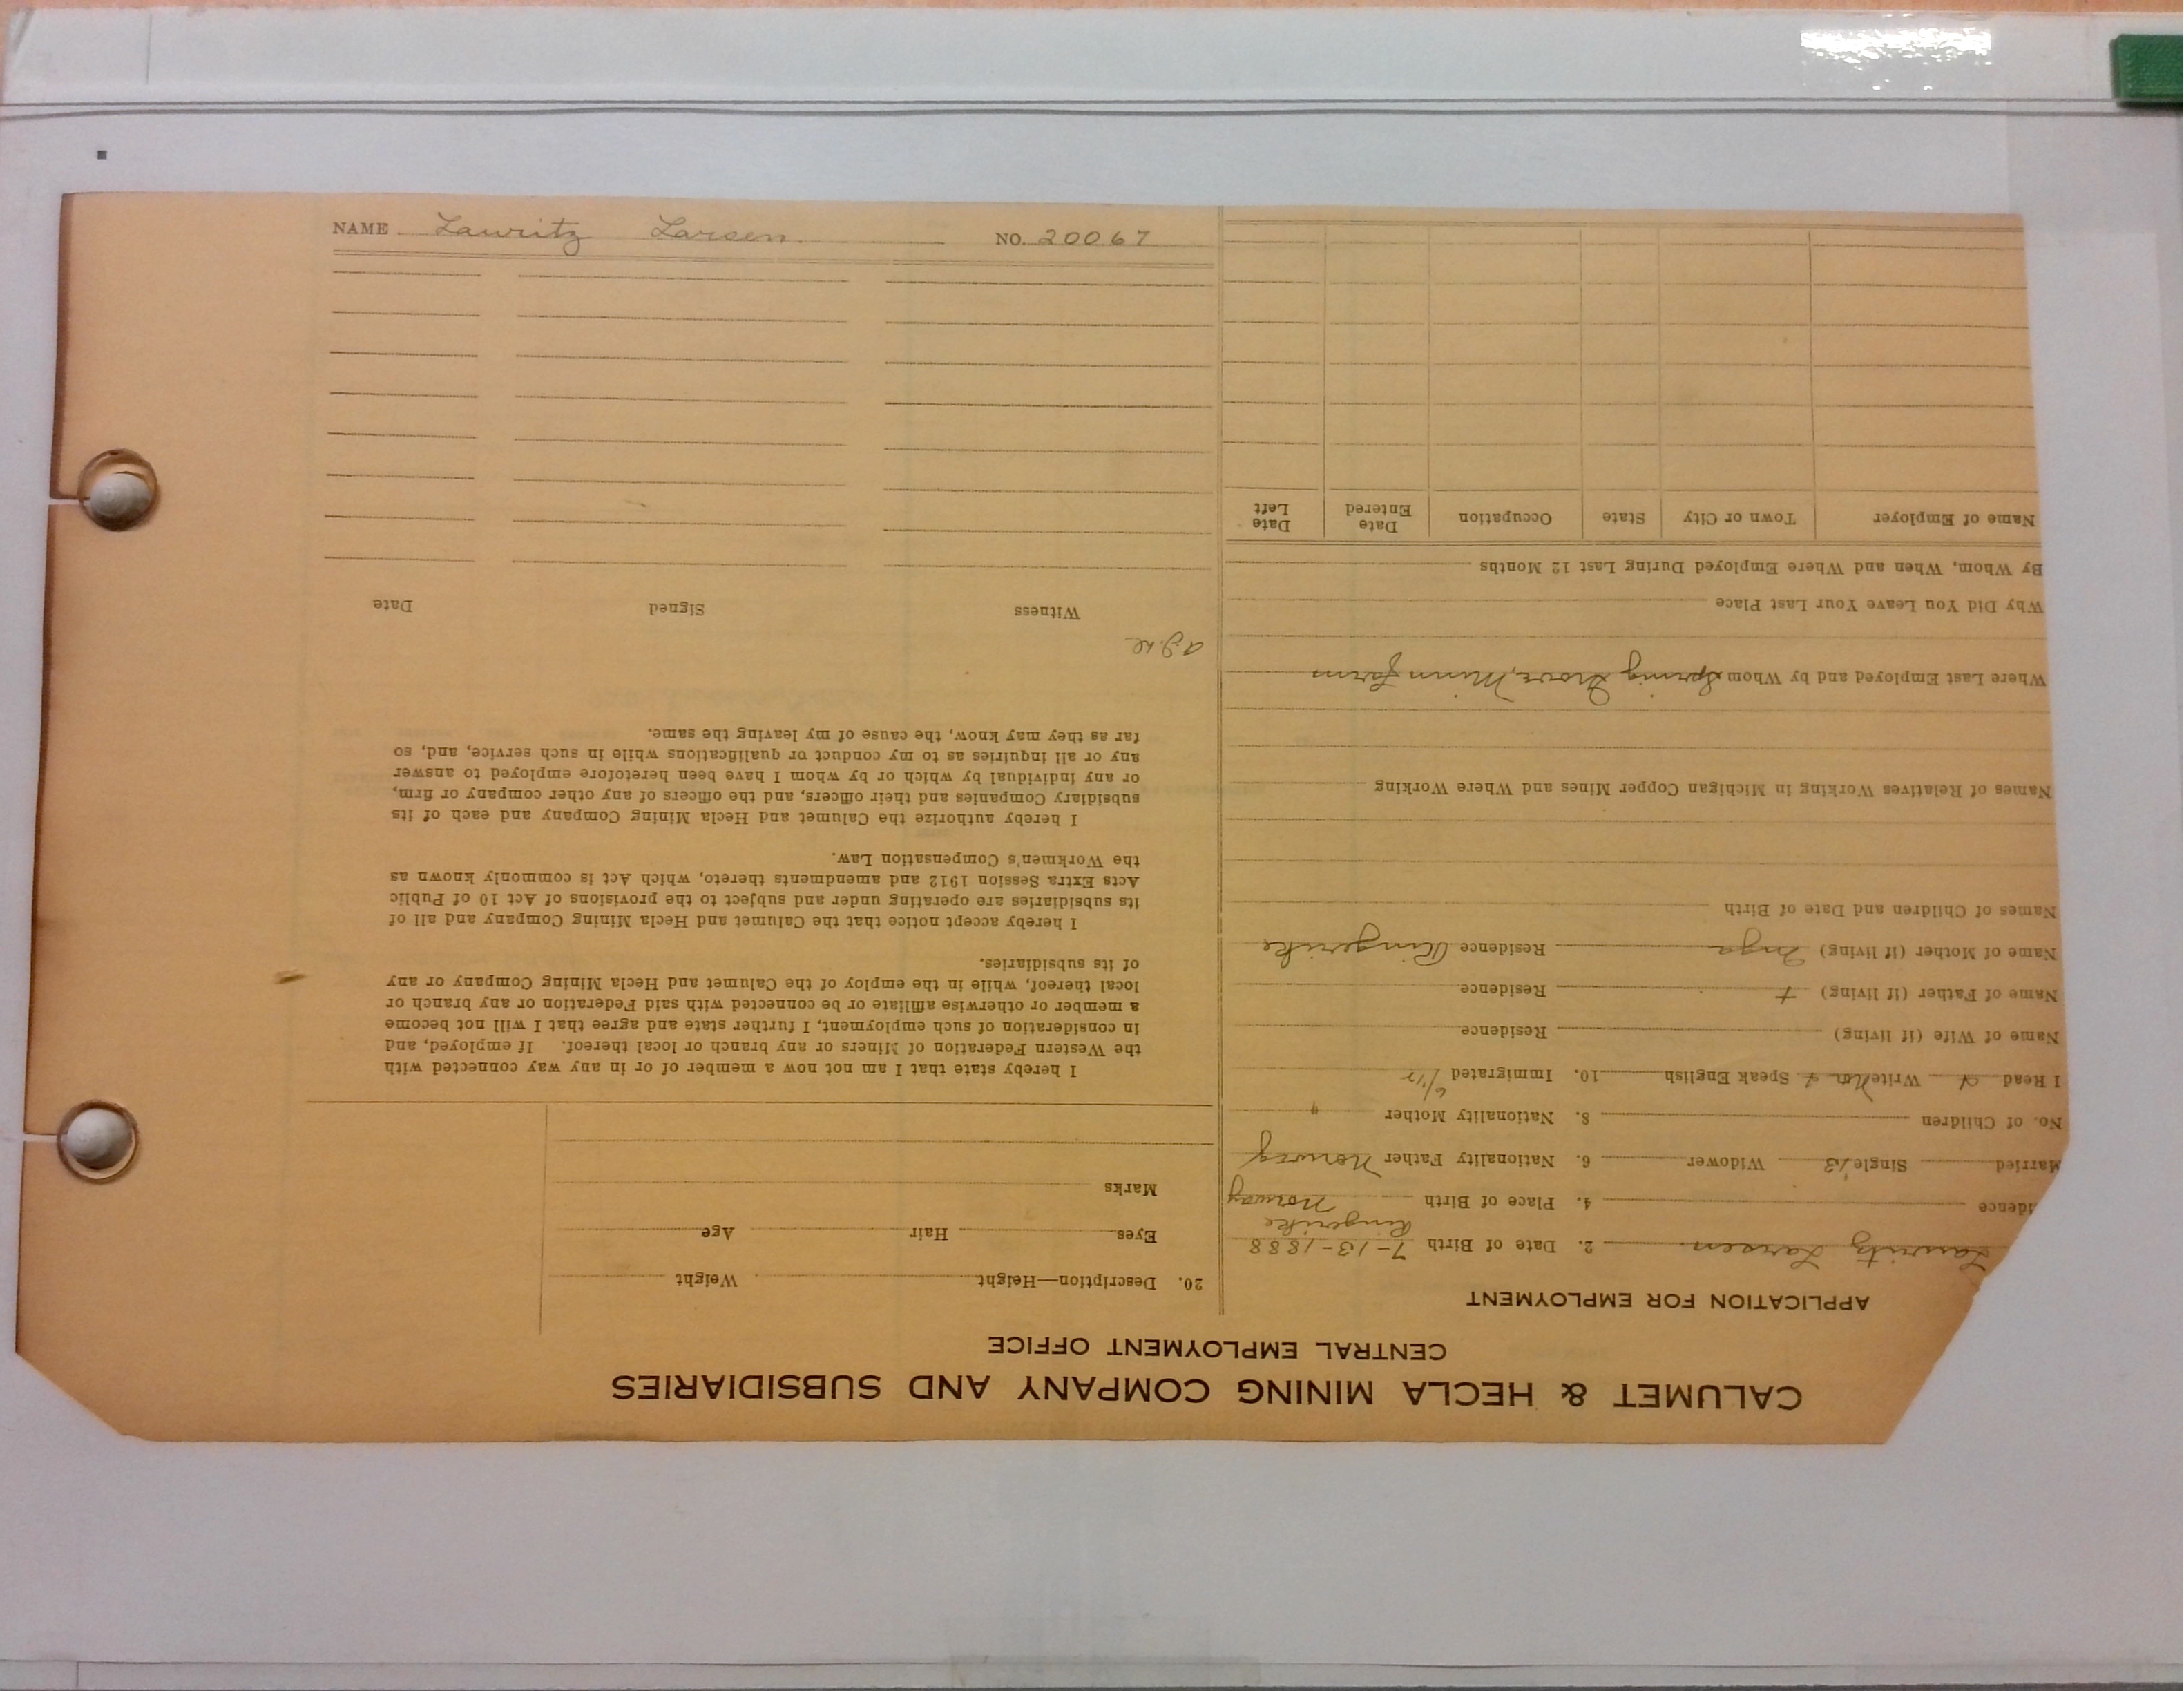 NAME Lauritz Larsen NO. 20067
CALUMET & HECLA MINING COMPANY AND SUBSIDIARIES
CENTRAL EMPLOYMENT OFFICE
APPLICATION FOR EMPLOYMENT
Lauritz Larsen 2. Date of Birth 7-13-1888
Ringerike
idence 4. Place of Birth Norway
Married Single Widower 6. Nationality Father Norway
No. of Children 8. Nationality Mother "
I Read Write Nor Speak English 10. Immigrated
Name of Wife (if living) Residence
Name of Father (if living) + Residence
Name of Mother (if living) Inga Residence Ringerike
Names of Children and Date of Birth
Names of Relatives Working in Michigan Copper Mines and Where Working
Where Last Employed and by Whom Spring Grove, Minn farm
Why Did You Leave Your Last Place
By Whom, When and Where Employed During Last 12 Months
Name of Employer Town or City State Occupation Date Entered Date Left
20. Description—Height Weight
Eyes Hair Age
Marks
I hereby state that I am not now a member of or in any way connected with
the Western Federation of Miners or any branch or local thereof. If employed, and
in consideration of such employment, I further state and agree that I will not become
a member or otherwise affiliate or be connected with said Federation or any branch or
local thereof, while in the employ of the Calumet and Hecla Mining Company or any
of its subsidiaries.
I hereby accept notice that the Calumet and Hecla Mining Company and all of
its subsidiaries are operating under and subject to the provisions of Act 10 of Public
Acts Extra Session 1912 and amendments thereto, which Act is commonly known as
the Workmen's Compensation Law.
I hereby authorize the Calumet and Hecla Mining Company and each of its
subsidiary Companies and their officers, and the officers of any other company or firm,
or any individual by which or by whom I have been heretofore employed to answer
any or all inquiries as to my conduct or qualifications while in such service, and, so
far as they may know, the cause of my leaving the same.
Witness Signed Date